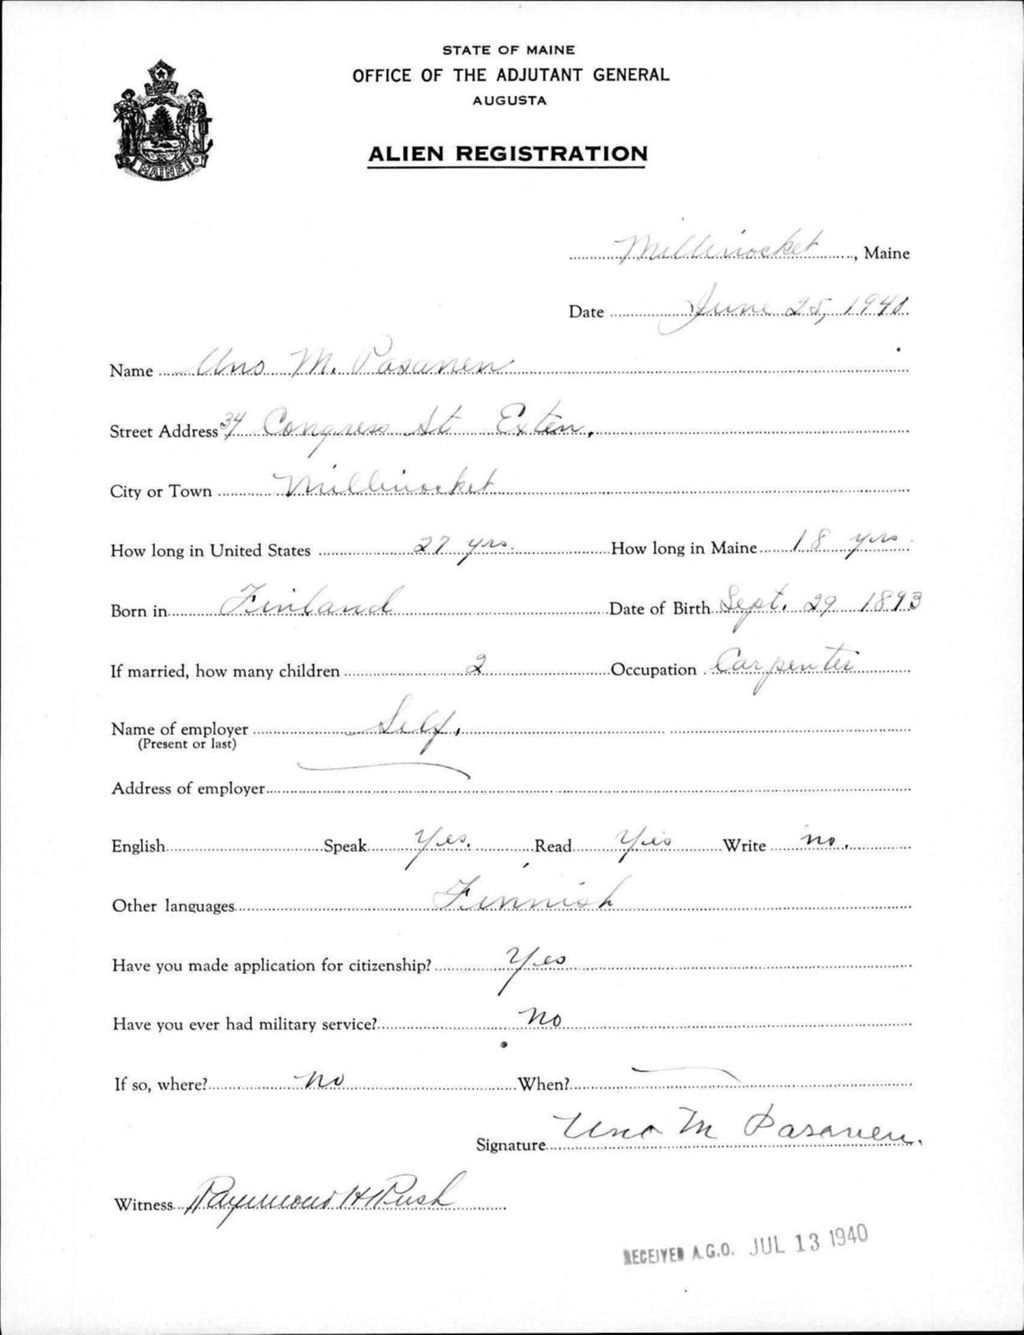 STATE OF MAINE
OFFICE OF THE ADJUTANT GENERAL
AUGUSTA
ALIEN REGISTRATION
MAINE
Millinocket, Maine
Date June 25, 1940
Name Uno M. Pasanen
Street Address 34 Congress St Exten.
City or Town Millinocket
How long in United States 27 yrs. How long in Maine 18 yrs.
Born in Finland Date of Birth Sept. 29 1893
If married, how many children 2 Occupation Carpenter
Name of employer Self.
(Present or last)
Address of employer
English Speak Yes. Read Yes Write no.
Other languages Finnish
Have you made application for citizenship? Yes
Have you ever had military service? No
If so, where? No When?
Signature Uno M Pasanen.
Witness Raymond H Rush
RECEIVED A.G.O. JUL 13 1940